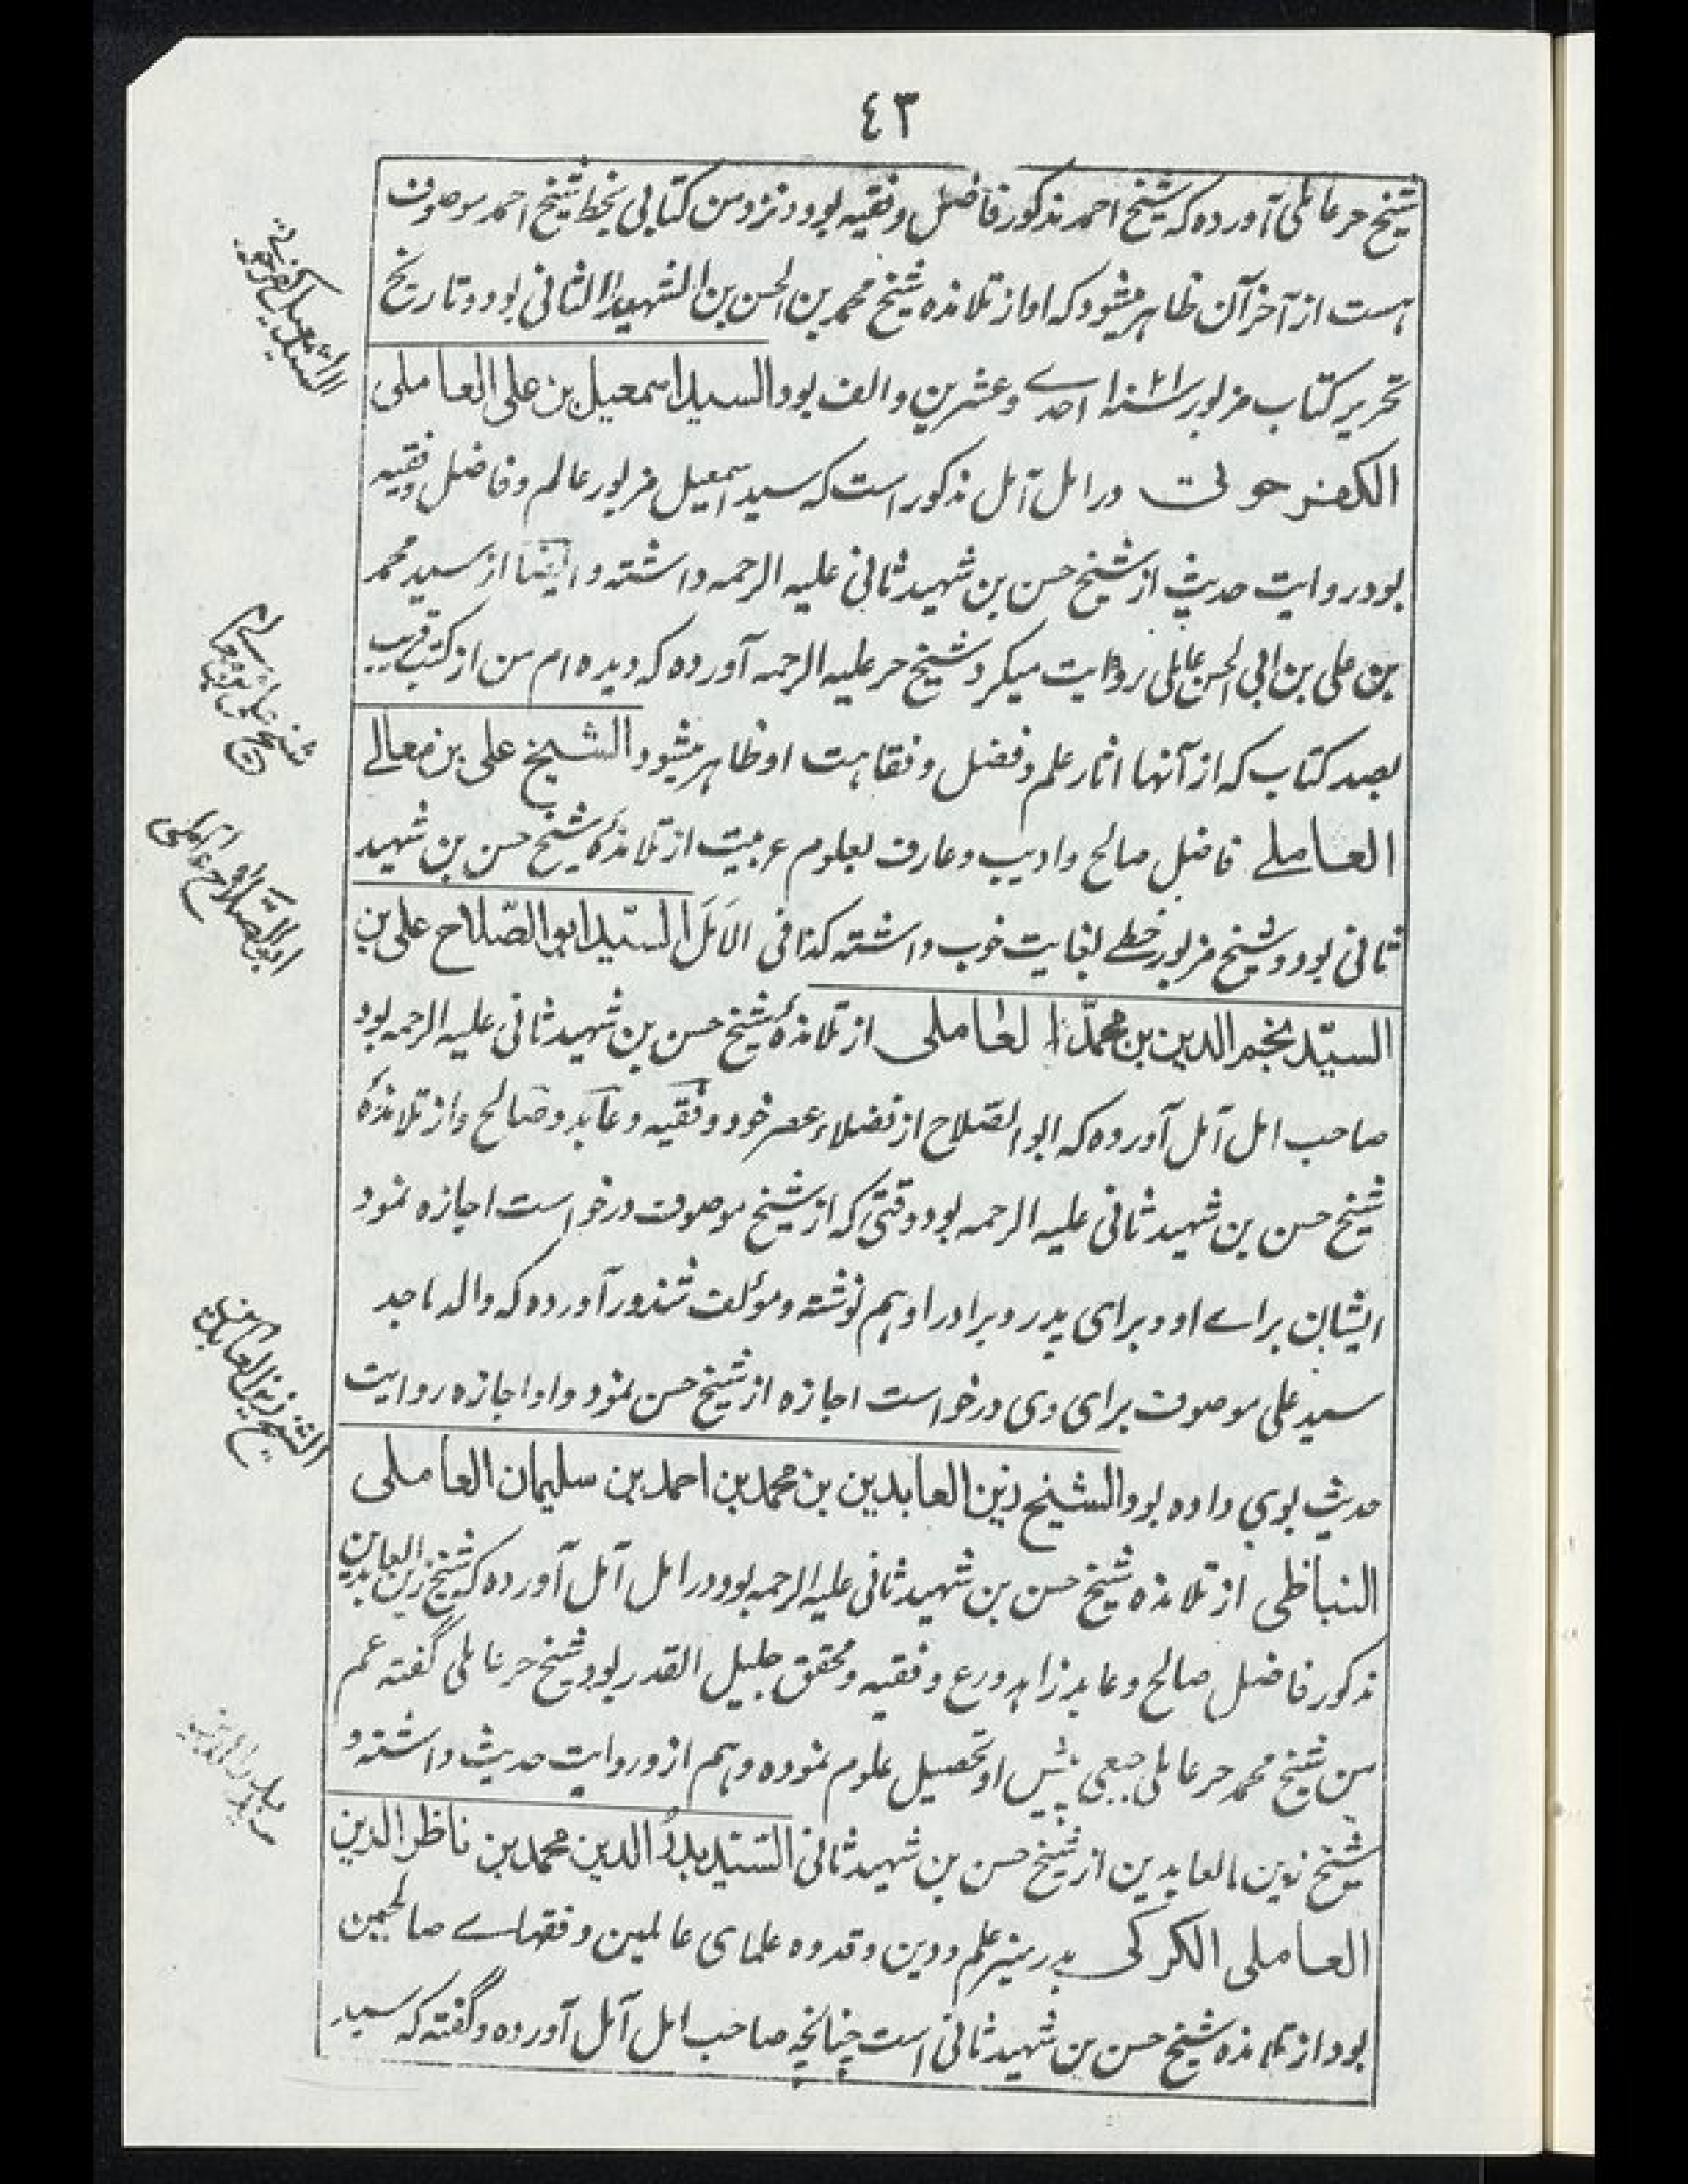 ٤٣
شیخ حر عاملی آورده که شیخ احمد مذکور فاضل و فقیه بود و نزد من کتابی بخط شیخ احمد موصوف
هست از آخر آن ظاهر میشود که او از تلامذه شیخ محمد بن الحسن بن الشهید الثانی بود و تاریخ
تحریر کتاب مزبور سنه احدے و عشرین و الف بود السید اسمعیل بن علی العاملی
الکفرحونی در امل آمل مذکور است که سید اسمعیل مزبور عالم و فاضل و فقیه
بود روایت حدیث از شیخ حسن بن شهید ثانی علیه الرحمه داشته و ایضا از سید محمد
بن علی بن ابی الحسن عاملی روایت میکرد و شیخ حر علیه الرحمه آورده که دیده ام من از کتب قریب
بصد کتاب که از آنها اثار علم و فضل و فقاهت او ظاهر میشود الشیخ علی بن معالے
العاملے فاضل صالح و ادیب و عارف بعلوم عربیت از تلامذهٔ شیخ حسن بن شهید
ثانی بود و شیخ مزبور خطے بغایت خوب داشته کذا فی الامَل السّید ابو الصّلاح علی بن
السیّد نجم الدین بن محمّد العاملی از تلامذهٔ شیخ حسن بن شهید ثانی علیه الرحمه بود
صاحب امل آمل آورده که ابو الصّلاح از فضلاء عصر خود و فقیه و عابد و صالح و از تلامذهٔ
شیخ حسن بن شهید ثانی علیه الرحمه بود وقتی که از شیخ موصوف درخواست اجازه نمود
ایشان براے او و برای پدر و برادر او هم نوشته و مؤلف شذور آورده که والد ماجد
سید علی موصوف برای وی درخواست اجازه از شیخ حسن نمود و او اجازه روایت
حدیث بوی داده بود الشیخ زین العابدین بن محمد بن احمد بن سلیمان العاملی
النباطی از تلامذه شیخ حسن بن شهید ثانی علیه الرحمه بود در امل آمل آورده که شیخ زین العابدین
مذکور فاضل صالح و عابد زاهد ورع و فقیه و محقق جلیل القدر بود و شیخ حر عاملی گفته عم
من شیخ محمد حر عاملی جبعی پیش او تحصیل علوم نموده و هم از و روایت حدیث داشته و
شیخ زین العابدین از شیخ حسن بن شهید ثانی السّید بدر الدین محمد بن ناظر الدین
العاملی الکرکی بدر منیر علم و دین و قدوه علمای عالمین و فقهاے صالحین
بود از تلامذه شیخ حسن بن شهید ثانی است چنانچه صاحب امل آمل آورده و گفته که سید
السید اسمعیل کفرحونی
شیخ علی بن معالے
ابو الصّلاح عاملی
الشیخ زین العابدین